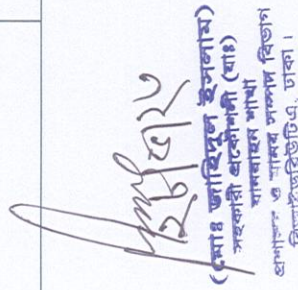 (মোঃ জাহিদুল ইসলাম)
সহকারী প্রকৌশলী (যাঃ)
যানবাহন শাখা
প্রশাসন ও মানব সম্পদ বিভাগ
বিআইডব্লিউটিএ, ঢাকা।